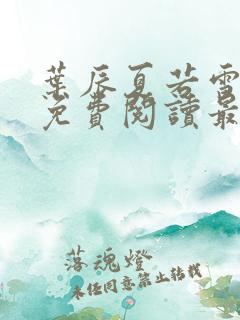 葉辰夏若雪
免費閱讀最
落魂燈
未经同意禁止转载